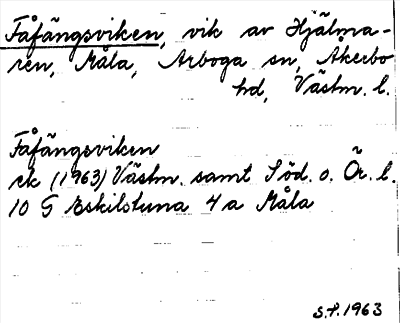 Fåfängsviken, vik av Hjälma-
ren, Måla, Arboga sn, Åkerbo
hd, Västm. l.
Fåfängsviken
ek (1963) Västm. samt Söd. o. Ör. l.
10 G Eskilstuna 4 a Måla
S.F. 1963